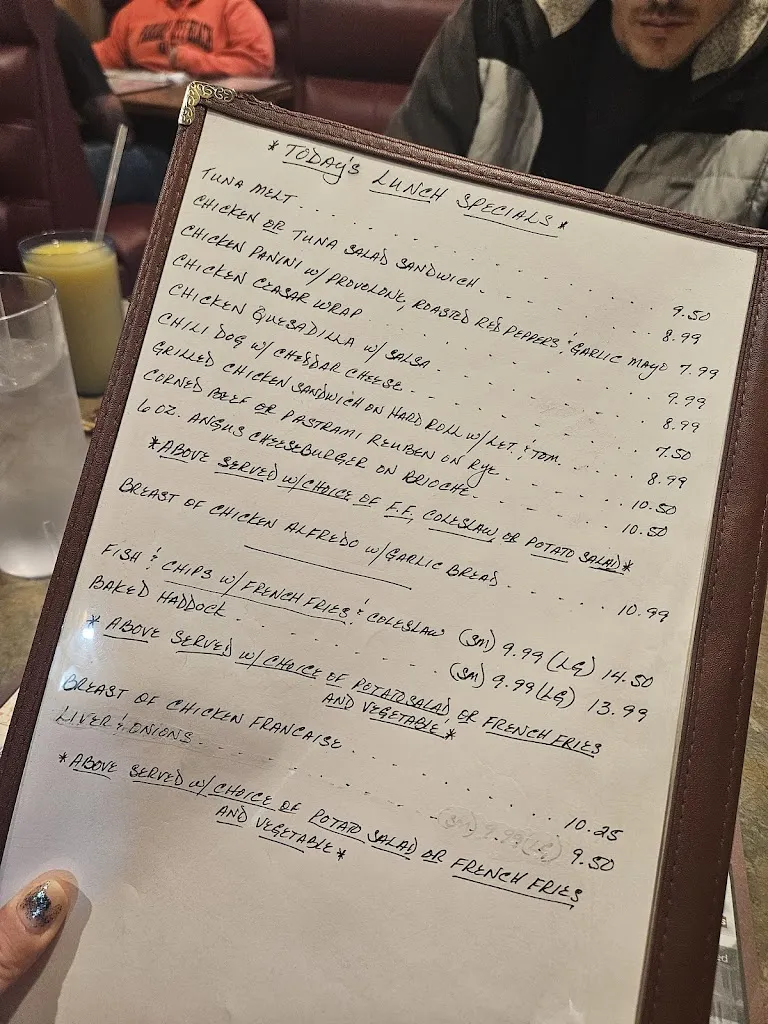 * TODAY'S LUNCH SPECIALS *
TUNA MELT . . . . . . . . . . 9.50
CHICKEN OR TUNA SALAD SANDWICH . . . . . . 8.99
CHICKEN PANINI W/ PROVOLONE, ROASTED RED PEPPERS & GARLIC MAYO 7.99
CHICKEN CEASAR WRAP . . . . . . . . . . 9.99
CHICKEN QUESADILLA W/ SALSA . . . . . . . . 8.99
CHILI DOG W/ CHEDDAR CHEESE . . . . . . . . 7.50
GRILLED CHICKEN SANDWICH ON HARD ROLL W/ LET. & TOM. . . . . 8.99
CORNED BEEF OR PASTRAMI REUBEN ON RYE . . . . . . 10.50
6 OZ. ANGUS CHEESEBURGER ON BRIOCHE . . . . . . 10.50
*ABOVE SERVED W/CHOICE OF F.F, COLESLAW, OR POTATO SALAD*
BREAST OF CHICKEN ALFREDO W/GARLIC BREAD . . . . . 10.99
FISH & CHIPS W/ FRENCH FRIES & COLESLAW (SM) 9.99 (LG) 14.50
BAKED HADDOCK . . . . . . . . (SM) 9.99 (LG) 13.99
* ABOVE SERVED W/ CHOICE OF POTATO SALAD OR FRENCH FRIES
AND VEGETABLE *
BREAST OF CHICKEN FRANCAISE . . . . . . . . 10.25
LIVER & ONIONS . . . . . . . . 9.50
*ABOVE SERVED W/ CHOICE OF POTATO SALAD OR FRENCH FRIES
AND VEGETABLE*